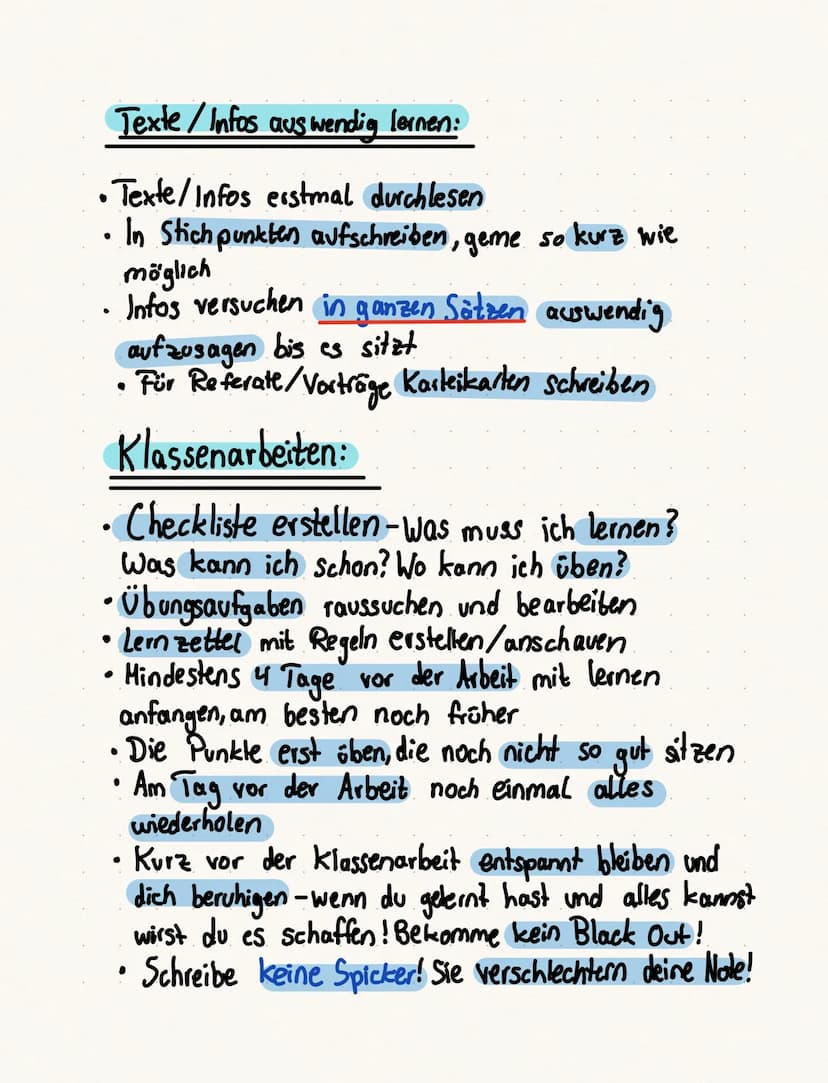 Texte/Infos auswendig lernen:
• Texte/Infos erstmal durchlesen
• In Stichpunkten aufschreiben, gerne so kurz wie
möglich
• Infos versuchen in ganzen Sätzen auswendig
aufzusagen bis es sitzt
• Für Referate/Vorträge Karteikarten schreiben
Klassenarbeiten:
• Checkliste erstellen - Was muss ich lernen?
Was kann ich schon? Wo kann ich üben?
• Übungsaufgaben raussuchen und bearbeiten
• Lernzettel mit Regeln erstellen/anschauen
• Mindestens 4 Tage vor der Arbeit mit lernen
anfangen, am besten noch früher
• Die Punkte erst üben, die noch nicht so gut sitzen
• Am Tag vor der Arbeit noch einmal alles
wiederholen
• Kurz vor der Klassenarbeit entspannt bleiben und
dich beruhigen - wenn du gelernt hast und alles kannst
wirst du es schaffen! Bekomme kein Black Out!
• Schreibe keine Spicker! Sie verschlechtern deine Note!